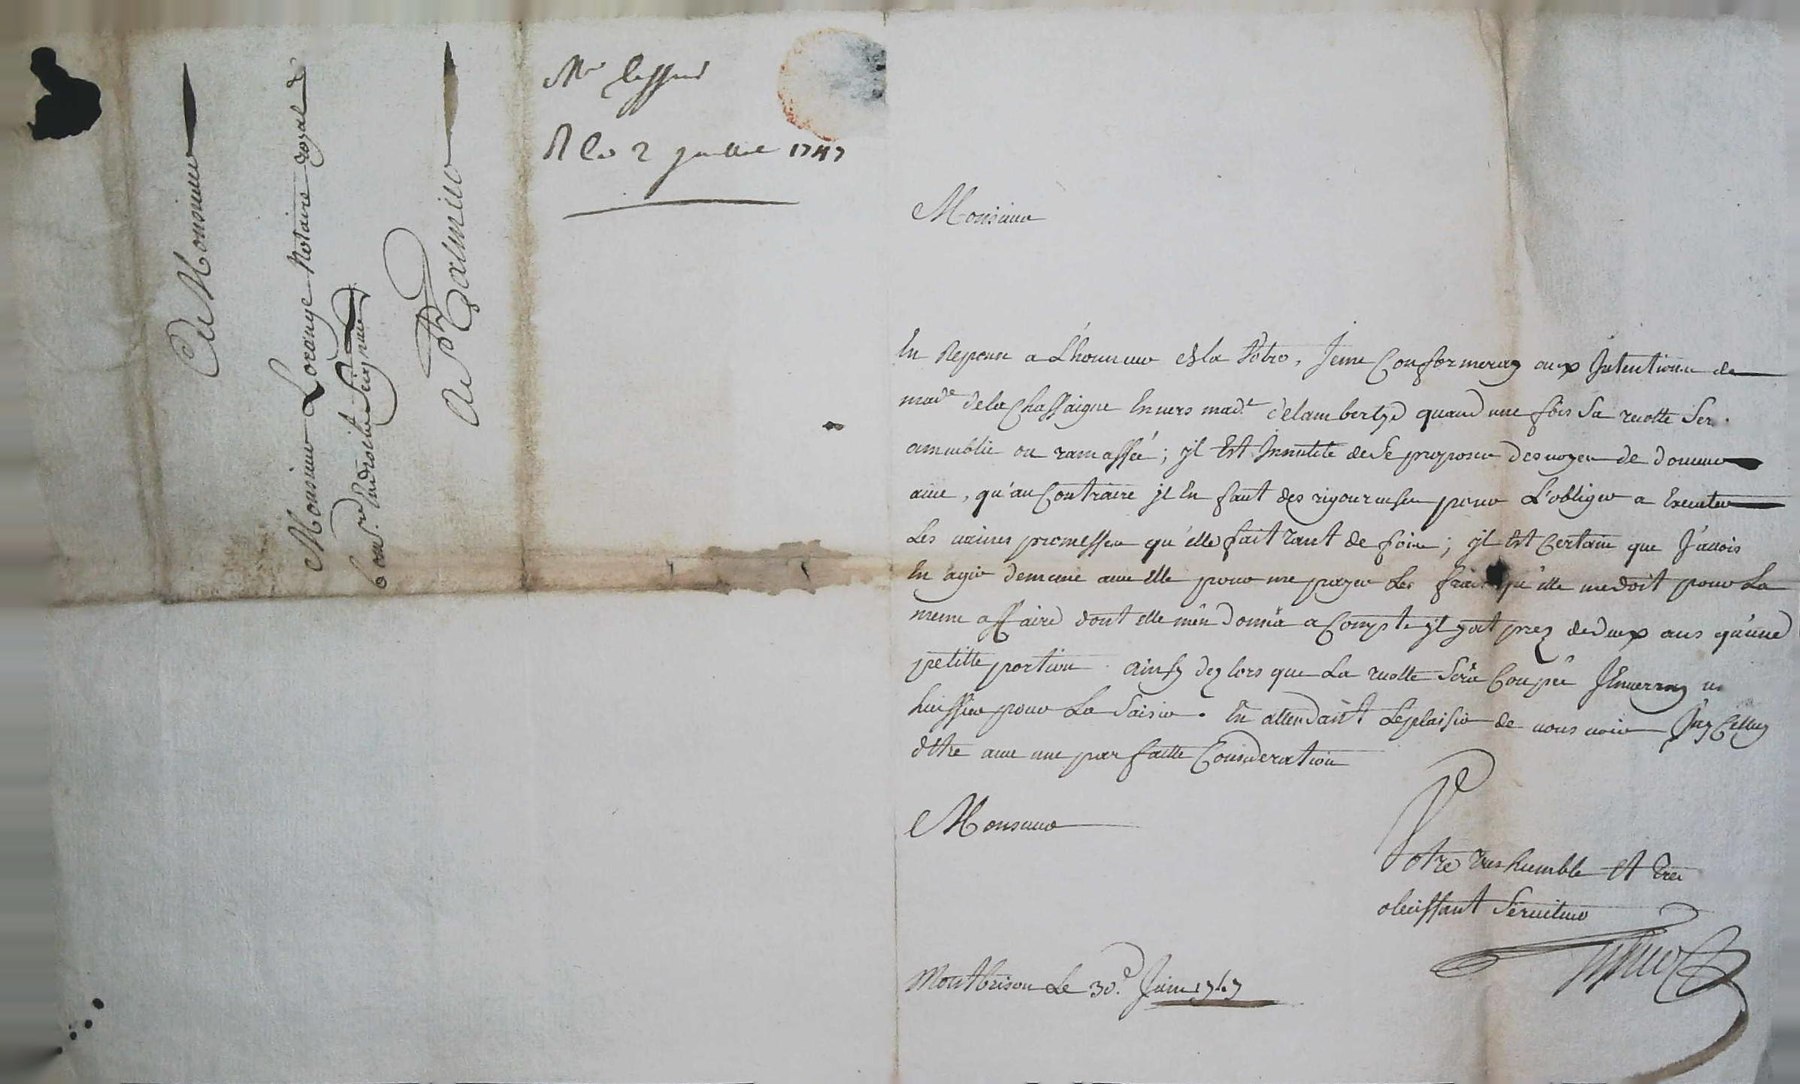 A Monsieur
Monsieur Lorange Notaire royal &
Com.re En droits Seigneur
A St Galmier
Mr
R le 2 juillet 1747
Monsieur
En Reponse a L'honneur de la Votre, Jeme Conformeray aux Intentions de
mad.e dela Chassaigne Envers mad.e delamberty quand une fois Sa recolte Sera
ameublie ou ramassée; jl Est Innutile de Se proposer des voyes de douceur
avec, qu'au Contraire jl En faut des rigoureuses pour L'obliger a Executer
Les vaines promesses qu'elle fait tant de fois; jl Est Certain que J'avois
En agir dememe avec Elle pour me payer des frais qu'elle medoit pour La
meme affaire dont elle m'en donna a Compte jl y at prez dedeux ans qu'une
petitte portion. ainsy dez lors que La recolte Sera Coupée J'Enverray un
huissier pour La Saisir. En attendant Leplaisir de vous voir
d'Etre avec une parfaitte Consideration
Monsieur
Votre tres humble et tres
obeissant Serviteur
Montbrison Le 30.e Juin 1747